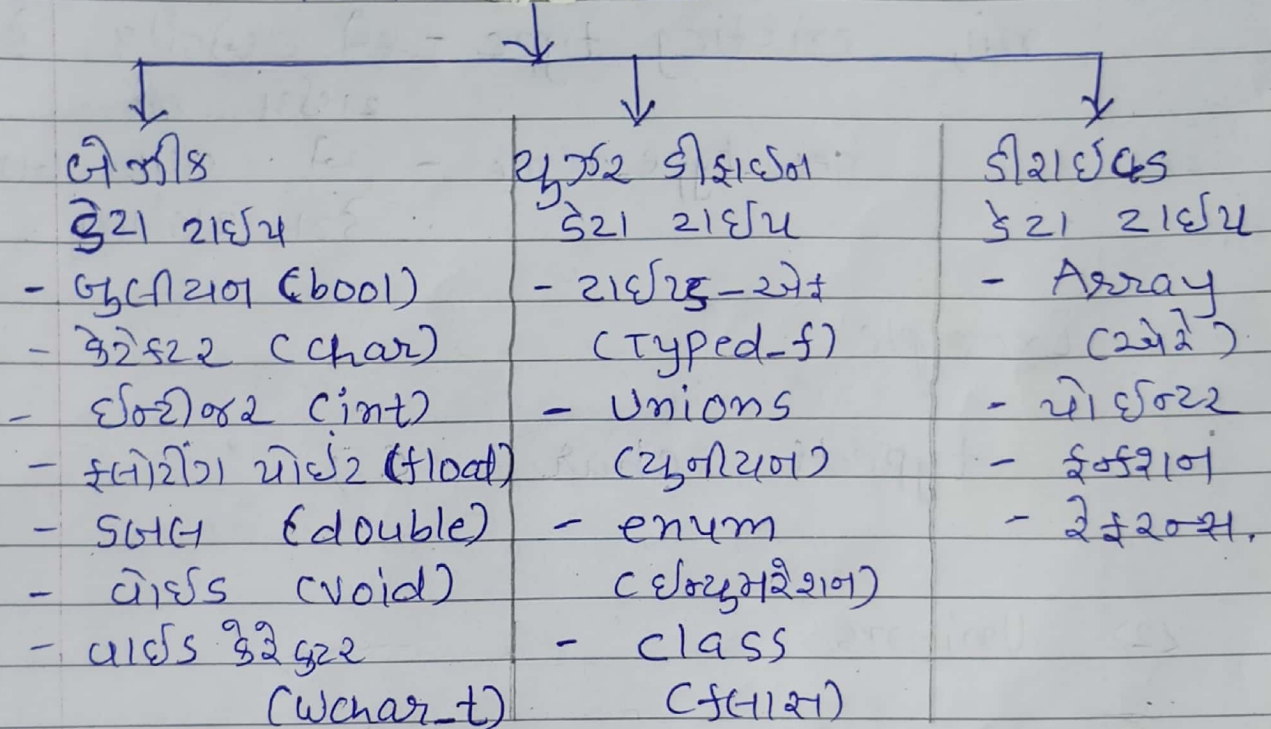 બેઝીક
ડેટા ટાઈપ
- બુલીયન (bool)
- કેરેક્ટર (char)
- ઈન્ટીજર (int)
- ફ્લોટીંગ પોઈંટ (float)
- ડબલ (double)
- વોઈડ (void)
- વાઈડ કેરેક્ટર
(wchar_t)
યુઝર ડીફાઈન
ડેટા ટાઈપ
- ટાઈપડ-એફ
(Typed_f)
- Unions
(યુનીયન)
- enum
(ઈન્યુમરેશન)
- class
(ક્લાસ)
ડીરાઈવ્ડ
ડેટા ટાઈપ
- Array
(એરે)
- પોઈન્ટર
- ફન્કશન
- રેફરન્સ.